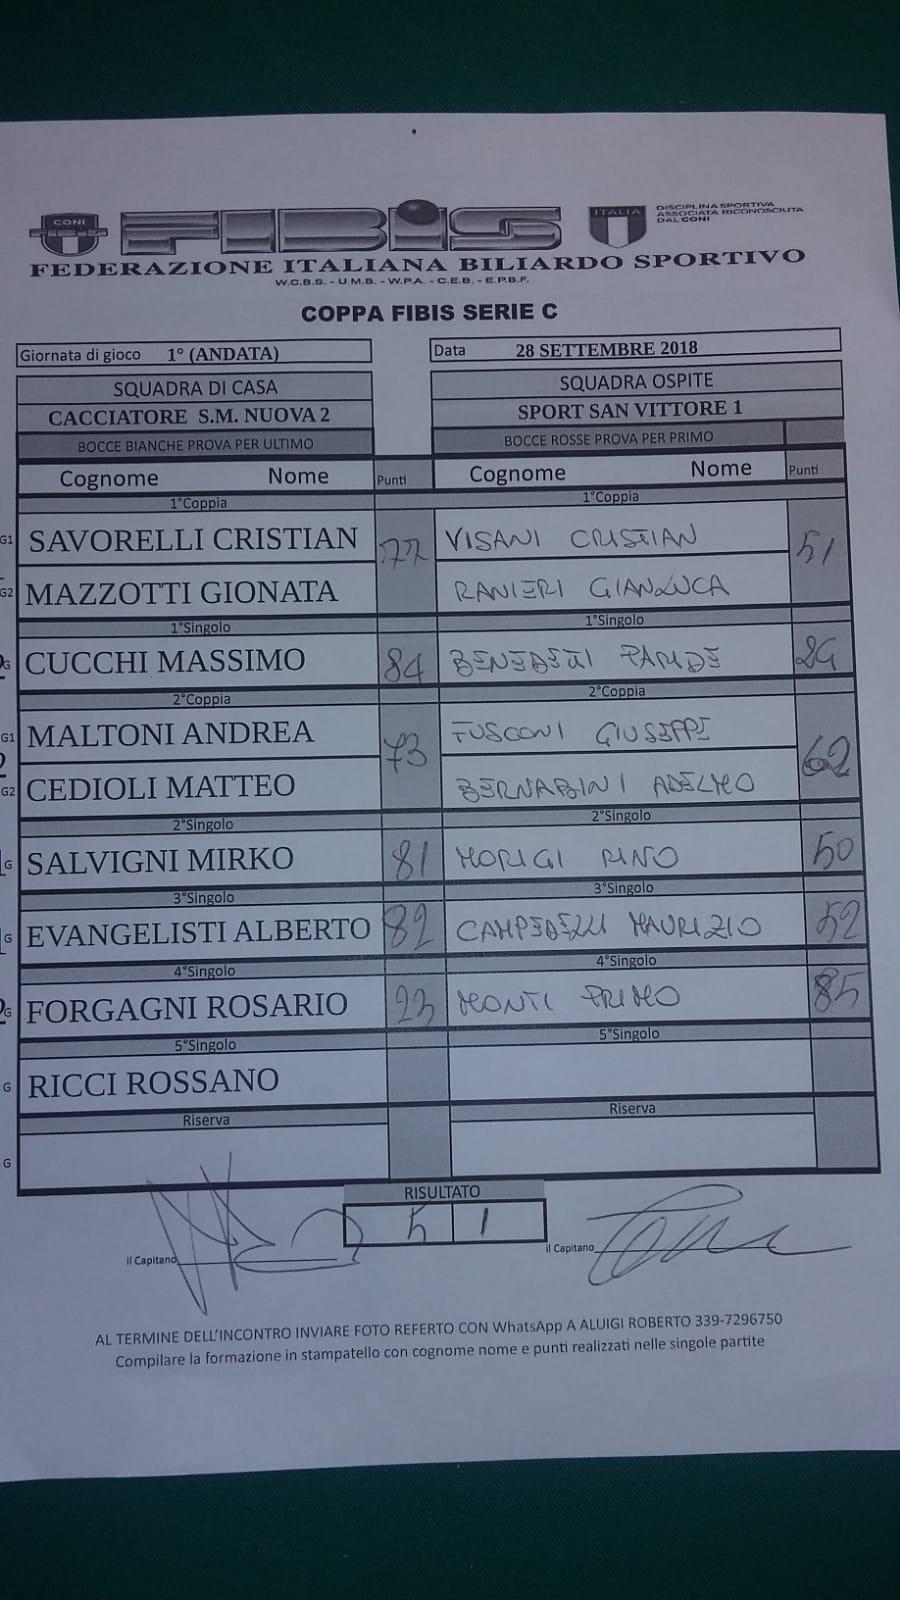 CONI
FIBIS
ITALIA
DISCIPLINA SPORTIVA
ASSOCIATA RICONOSCIUTA
DAL CONI
FEDERAZIONE ITALIANA BILIARDO SPORTIVO
W.C.B.S. - U.M.B. - W.P.A. - C.E.B. - E.P.B.F.
COPPA FIBIS SERIE C
Giornata di gioco 1° (ANDATA) Data 28 SETTEMBRE 2018
SQUADRA DI CASA SQUADRA OSPITE
CACCIATORE S.M. NUOVA 2 SPORT SAN VITTORE 1
BOCCE BIANCHE PROVA PER ULTIMO BOCCE ROSSE PROVA PER PRIMO
Cognome Nome Punti Cognome Nome Punti
1°Coppia 1°Coppia
G1 SAVORELLI CRISTIAN 77 VISANI CRISTIAN 51
G2 MAZZOTTI GIONATA RANIERI GIANLUCA
1°Singolo 1°Singolo
G CUCCHI MASSIMO 84 BENEDETTI PARIDE
2°Coppia 2°Coppia
G1 MALTONI ANDREA 73 FUSCONI GIUSEPPE 62
G2 CEDIOLI MATTEO BERNABINI ADELMO
2°Singolo 2°Singolo
G SALVIGNI MIRKO 81 MORIGI RINO 50
3°Singolo 3°Singolo
G EVANGELISTI ALBERTO 82 CAMPEDELLI MAURIZIO 52
4°Singolo 4°Singolo
G FORGAGNI ROSARIO 23 MONTI PRIMO 85
5°Singolo 5°Singolo
G RICCI ROSSANO
Riserva Riserva
G
RISULTATO
5 1
il Capitano il Capitano
AL TERMINE DELL'INCONTRO INVIARE FOTO REFERTO CON WhatsApp A ALUIGI ROBERTO 339-7296750
Compilare la formazione in stampatello con cognome nome e punti realizzati nelle singole partite